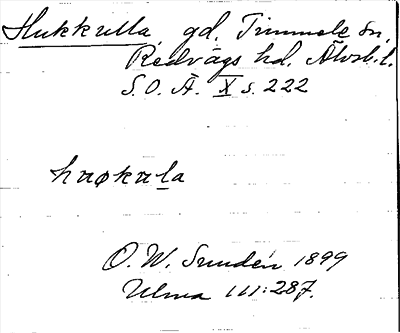 Slukkulla, gd, Timmele sn,
Redvägs hd. Älvsb. l.
S.O.Ä. X s. 222
O. W. Sundén 1899
Ulma 111:287.